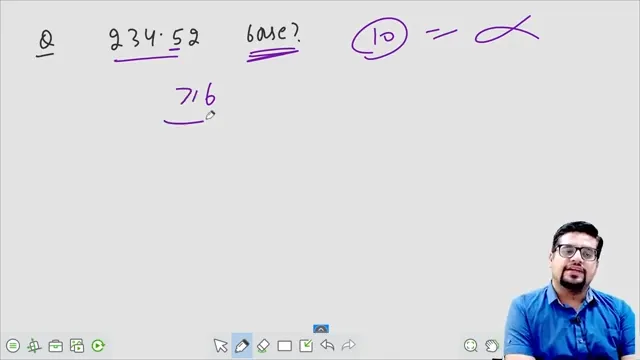 Q 234.52 base? 10 = α
≥6